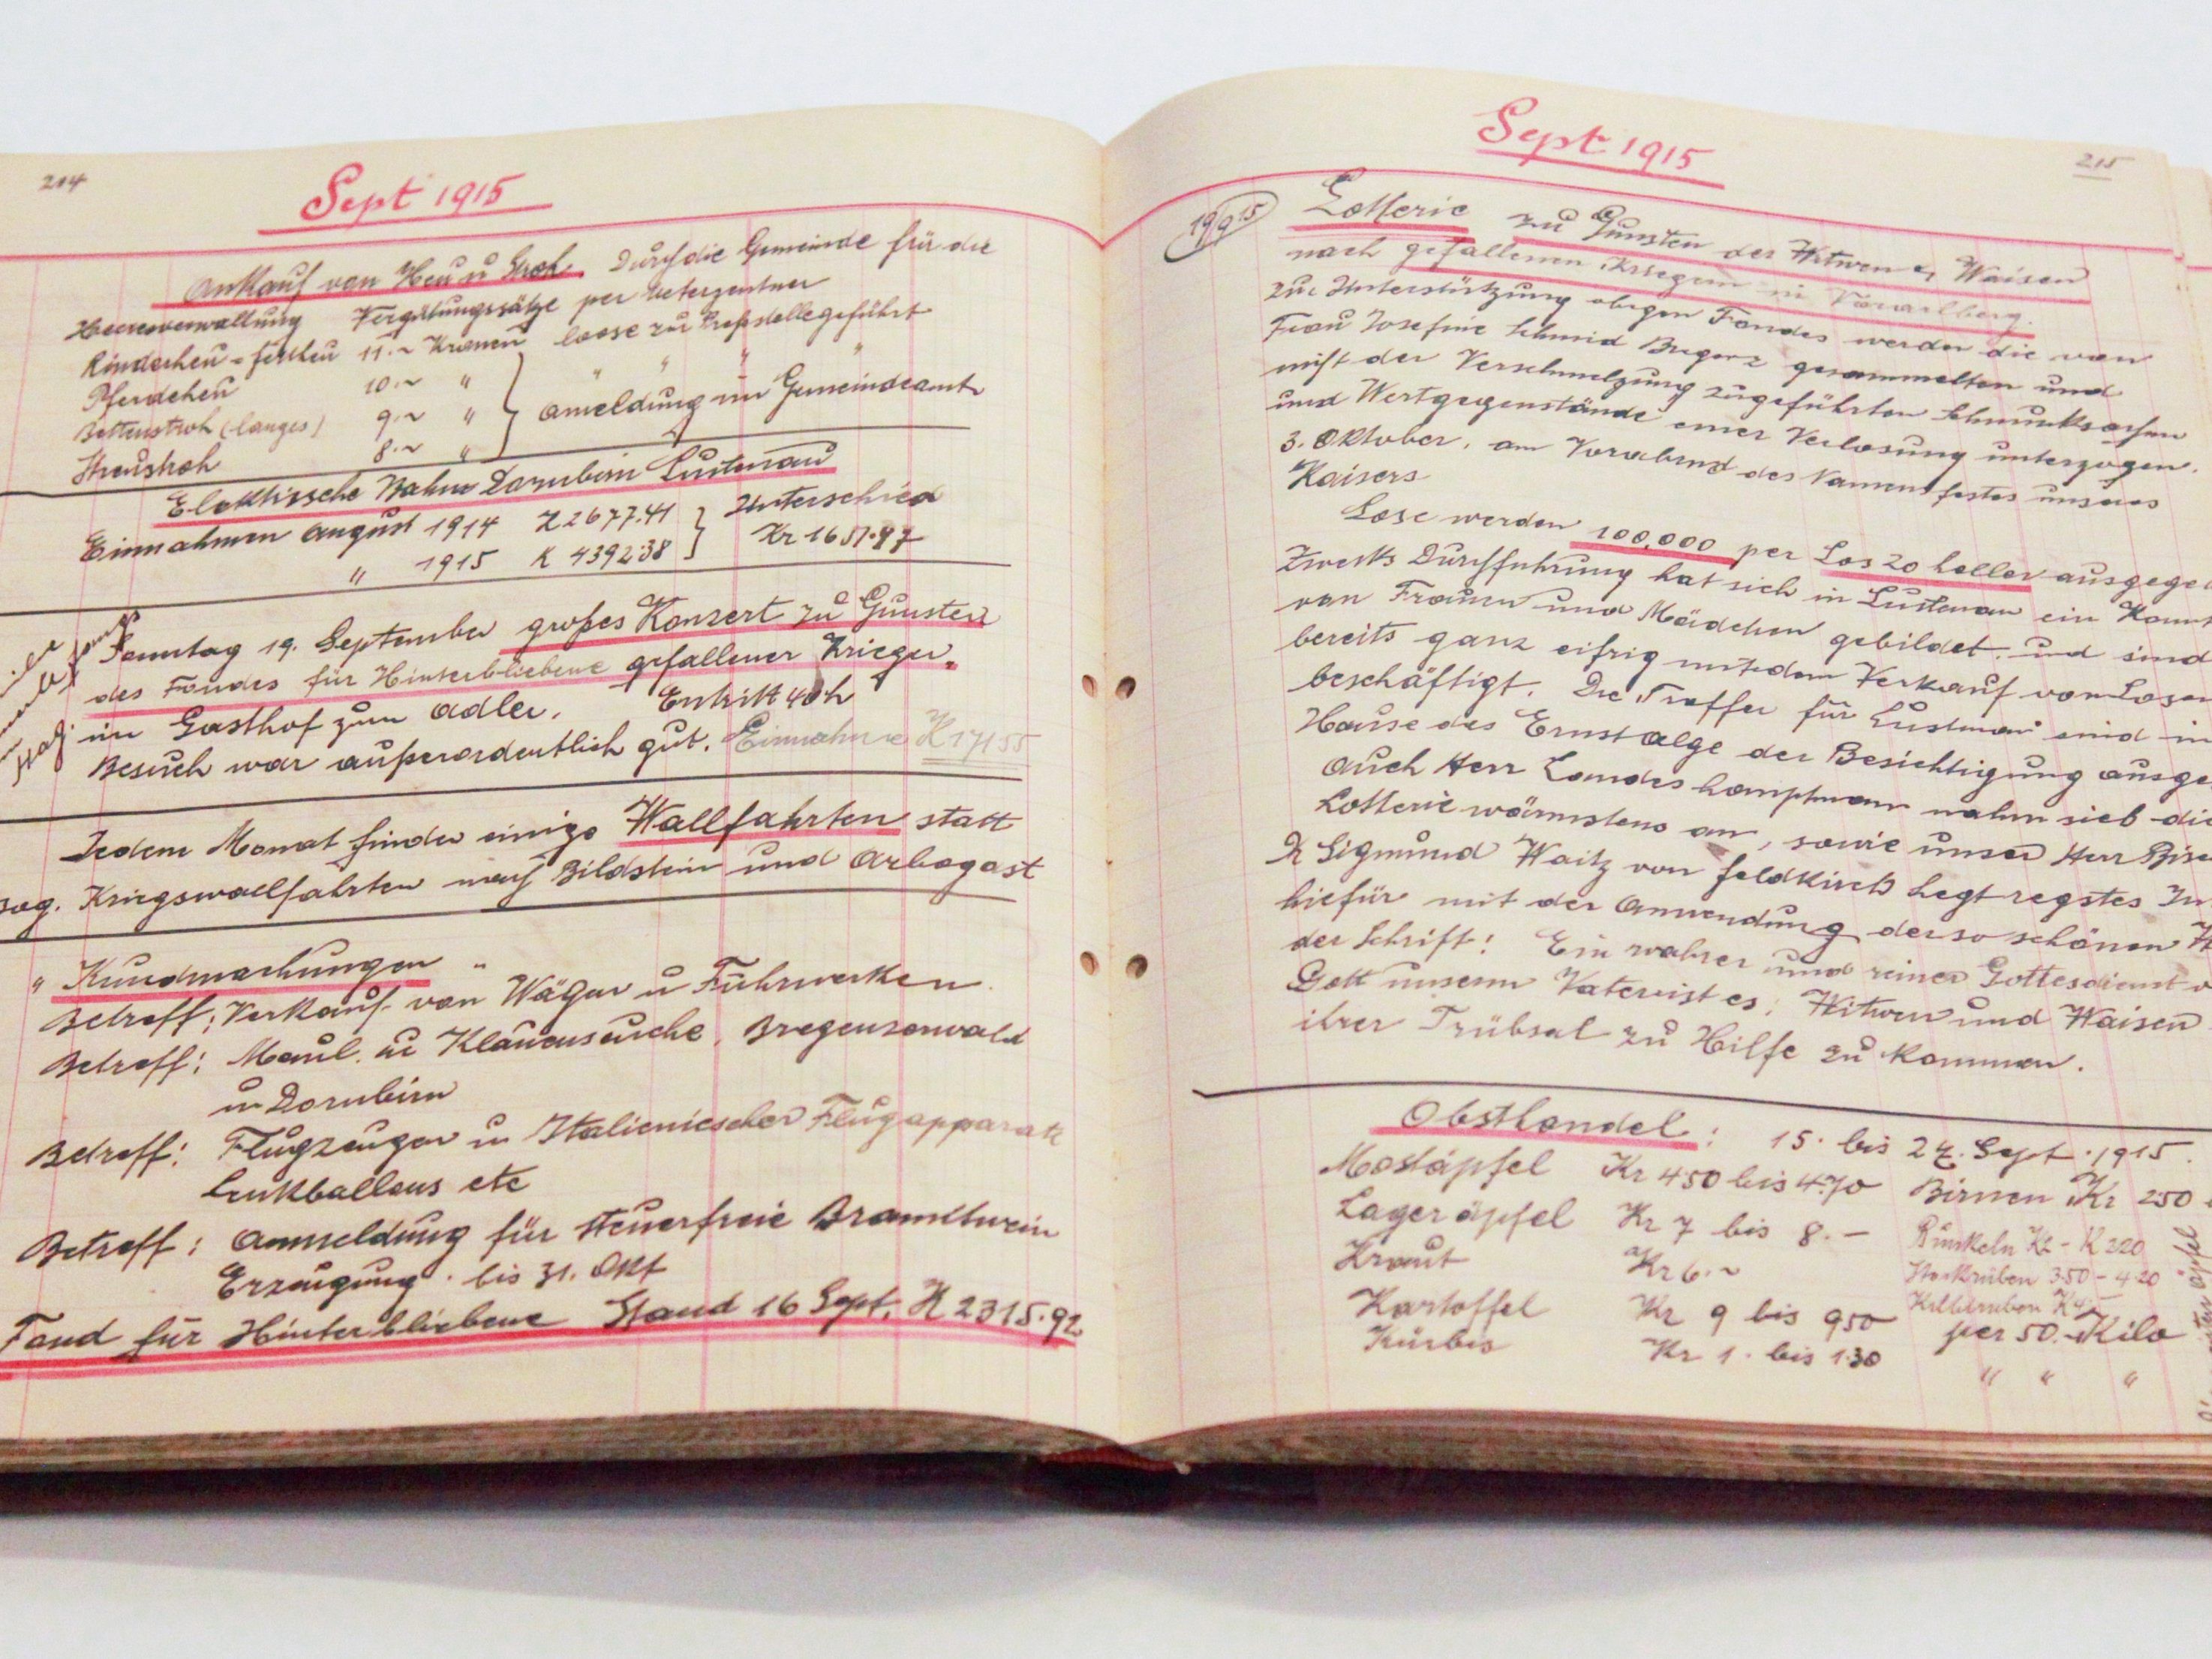 214
Sept 1915
Ankauf von Heu u Stroh. Durch die Gemeinde für die
Heeresverwaltung Vergütungssätze per Meterzentner
Rinderheu - fettheu 11.~ Kronen loose zur Preßstelle geführt
Pferdeheu 10.~ " " " "
Bettenstroh (langes) 9.~ " Anmeldung im Gemeindeamt
Streustroh 8.~ "
Elektrische Bahn Dornbirn Lustenau
Einnahmen August 1914 K 2677.41 Unterschied
" 1915 K 4392.38 Kr 1651.97
Sonntag 19. September großes Konzert zu Gunsten
des Fondes für Hinterbliebene gefallener Krieger.
im Gasthof zum Adler. Entritt 40 h
Besuch war außerordentlich gut. Einnahme K 171 55
Jedem Monat finden einige Wallfahrten statt
sog. Kriegswallfahrten nach Bildstein und Arbogast
" Kundmachungen "
Betreff: Verkauf von Wägen u Fuhrwerken.
Betreff: Maul u Klauenseuche, Bregenzerwald
u Dornbirn
Betreff: Flugzeuger u Italieniescher Flugapparate
Lenkballons etc
Betreff: Anmeldung für steuerfreie Brandtwein
Erzeugung . bis 31. Okt
Fond für Hinterbliebene Stand 16 Sept. K 2315.92
Sept 1915
215
19/9 15
Lotterie zu Gunsten der Witwen u Waisen
nach gefallenen Kriegern in Vorarlberg.
Zur Unterstützung obigen Fondes werden die von
Frau Josefine Schmid Bregenz gesammelten und
nicht der Verschmelzung zugeführten Schmucksachen
und Wertgegenstände einer Verlosung unterzogen.
3. Oktober, am Vorabend des Namensfestes unseres
Kaisers
Lose werden 100,000 per Los 20 heller ausgege
Zwecks Durchfuhrung hat sich in Lustenau ein Komit
von Frauen und Mädchen gebildet, und sind
bereits ganz eifrig mit dem Verkauf von Losen
beschäftigt. Die Treffer für Lustenau sind in
Hause des Ernst Alge der Besichtigung ausge
Auch Herr Landeshauptmann nahm sieb die
Lotterie wärmstens an, sowie unser Herr Bisc
Dr Sigmund Waitz von Feldkirch hegt regstes In
hiefür mit der Anwendung der so schönen W
der Schrift: Ein wahrer und reiner Gottesdienst v
Gott unserm Vater ist es; Witwen und Waisen
ihrer Trübsal zu Hilfe zu kommen.
Obsthandel: 15. bis 24. Sept. 1915.
Mostäpfel Kr 450 bis 4.70 Birnen Kr 250
Lageräpfel Kr 7 bis 8.- Runkeln K2 - K 220
Kraut Kr 6.~ Stockrüben 3.50 - 4.20
Kartoffel Kr 9 bis 950 per 50. Kilo
Kürbis Kr 1. bis 1.30 " " "